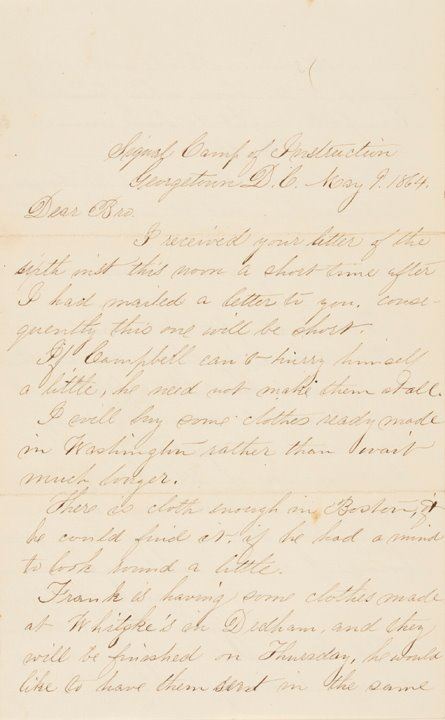 Signal Camp of Instruction
Georgetown D. C. May 9. 1864.
Dear Bro.
I received your letter of the
sixth inst this noon a short time after
I had mailed a letter to you, conse-
quently this one will be short.
If Campbell can't hurry himself
a little, he need not make them atall.
I will buy some clothes ready made
in Washington rather than wait
much longer.
There is cloth enough in Boston, &
he could find it, if he had a mind
to look round a little.
Frank is having some clothes made
at in Dedham, and they
will be finished on Thursday, he would
like to have them sent in the same